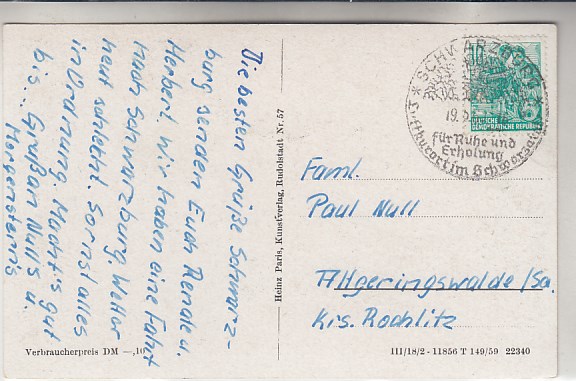 Die besten Grüße Schwarz-
burg senden Euch Renate u.
Herbert. Wir haben eine Fahrt
nach Schwarzburg. Wetter
heut schlecht. Sonst alles
in Ordnung. Macht's gut
bis... Gruß an Null's u.
Morgenstern's
Verbraucherpreis DM —,10
Heinz Paris, Kunstverlag, Rudolstadt Nr. 57
10
DEUTSCHE
DEMOKRATISCHE REPUBLIK
SCHWARZBURG
19.
für Ruhe und
Erholung
im Schwarzatal
Faml.
Paul Null
Altgeringswalde/Sa.
Krs. Rochlitz
III/18/2 - 11856 T 149/59 22340